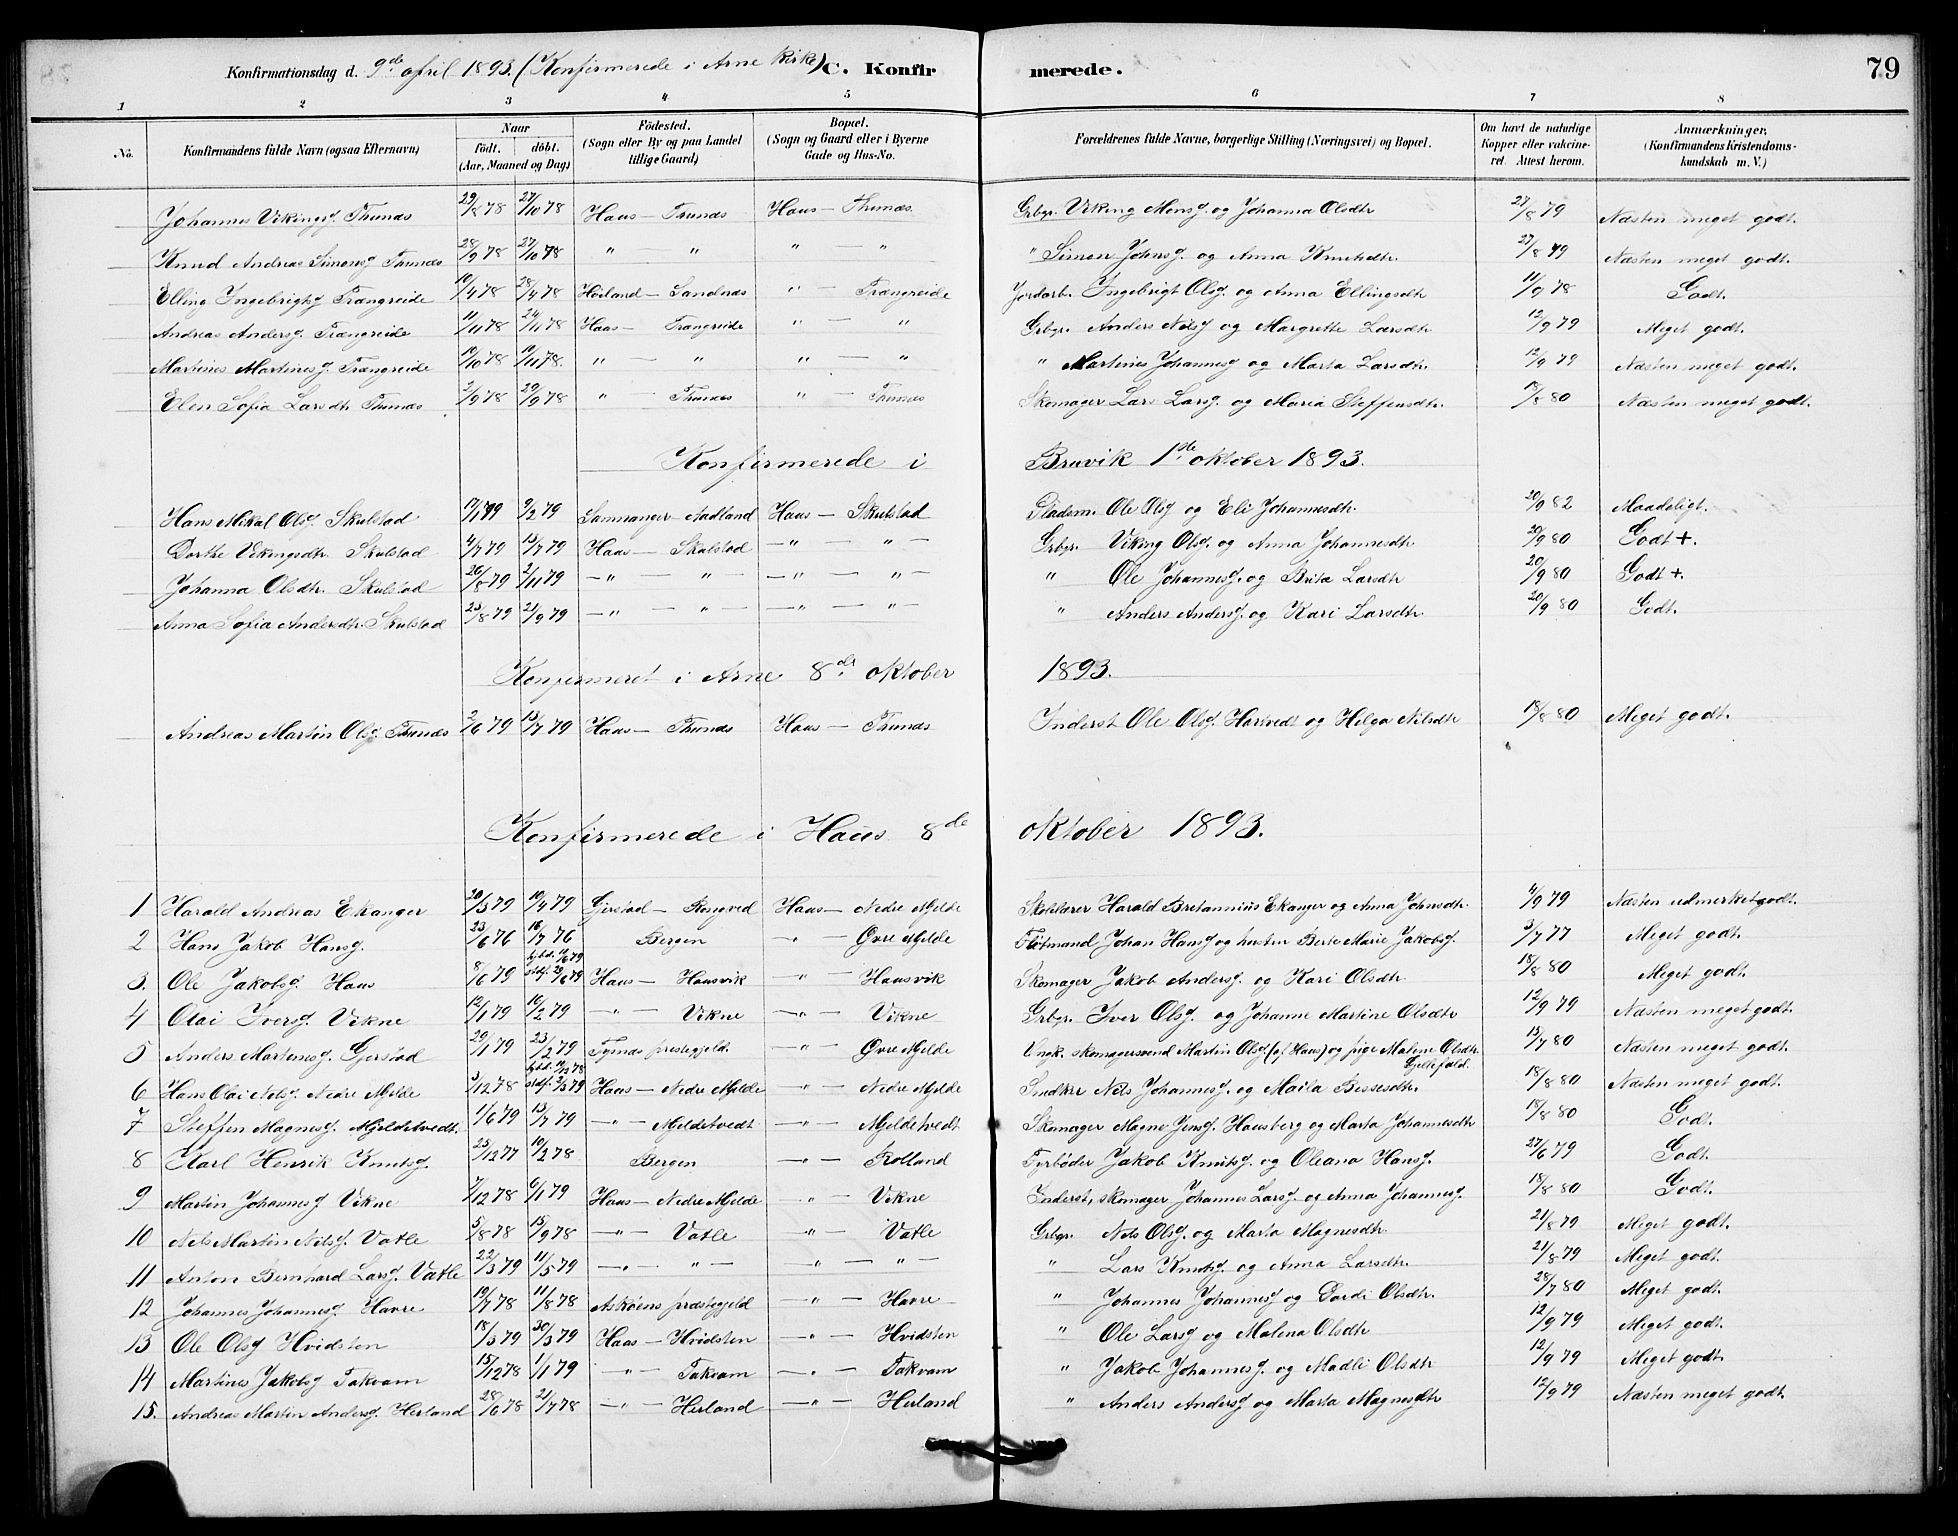 Konfirmationsdag d. 9de april 1893. (Konfirmerede i Arne Kirke) C. Konfirmerede. 79
1 2 3 4 5 6 7 8
No. Konfirmandens fulde Navn (ogsaa Efternavn) Naar født. døbt. (Aar, Maaned og Dag) Fødested. (Sogn eller By og paa Landet tillige Gaard) Bopæl. (Sogn og Gaard eller i Byerne Gade og Hus-No. Forældrenes fulde Navne, borgerlige Stilling (Næringsvei) og Bopæl. Om havt de naturlige Kopper eller vakcineret. Attest herom. Anmærkninger. (Konfirmandens Kristendomskundskab m. V.)
Johannes Vikingsg. Thunæs 29/8 78 27/10 78 Haus — Thunæs Haus — Thunæs. Grbgr. Viking Monsg. og Johanna Olsdtr 27/8 79 Næsten meget godt.
Knud Andreas Simonsg Thunæs 28/9 78 27/10 78 " — " " — " " Simon Johnsg. og Anna Knutsdtr 27/8 79 Næsten meget godt.
Elling Ingebrigtsg Trængreide 10/4 78 28/4 78 Høiland — Sandnæs " — Trængreide Jordarb. Ingebrigt Olsg. og Anna Ellingsdtr 11/9 78 Godt.
Andreas Andersg. Trængreide 11/11 78 24/11 78 Haus — Trængreide " — " Grbgr. Anders Nilsg og Margrette Larsdtr 12/9 79 Meget godt.
Martines Martinesg. Trængreide 10/10 78 10/11 78. " — " " — " " Martines Johannesg og Marta Larsdtr. 12/9 79 Næsten meget godt.
Elen Sofia Larsdtr Thunæs 2/9 78 29/9 78 " — Thunæs " — Thunæs Skomager Lars Larsg. og Maria Steffensdtr. 18/8 80 Næsten meget godt.
Konfirmerede i Bruvik 1ste oktober 1893.
Hans Mikal Olsg. Skulstad 17/1 79 9/2 79 Samnanger — Aadland Haus — Skulstad Pladsm. Ole Olsg og Eli Johannesdtr. 20/9 82 Maadeligt.
Dorthe Vikingsdtr. Skulstad 4/7 79 13/7 79 Haus — Skulstad — " — " — Grbgr. Viking Olsg. og Anna Johannesdtr 20/9 80 Godt +.
Johanna Olsdtr. Skulstad 26/8 79 2/11 79 — " — " — — " — " — " Ole Johannesg. og Brita Larsdtr 20/9 80 Godt +.
Anna Sofia Andersdtr. Skulstad 23/8 79 21/9 79 — " — " — — " — " — " Anders Andersg. og Kari Larsdtr 20/9 80 Godt.
Konfirmeret i Arne 8de oktober 1893.
Andreas Martin Olsg Thunæs 2/6 79 13/7 79 Haus — Thunæs Haus — Thunæs Inderst Ole Olsg. Hartvedt og Helga Nilsdtr 18/8 80 Meget godt.
Konfirmerede i Haus 8de oktober 1893.
1 Harald Andreas Ekanger 20/3 79 10/4 79 Gjerstad — Rongved Haus — Nedre Mjelde Skolelærer Harald Britannius Ekanger og Anna Johnsdtr. 4/9 79 Næsten udmerket godt.
2 Hans Jakob Hansg. 23/6 76 16/7 76 Bergen — " — Øvre Mjelde Fløtmand Johan Hansg og hustru Berte Marie Jakobsg. 3/7 77 Meget godt.
3. Ole Jakobsg. Haus 8/6 79 hjbd. /6 79 stdf. 29/6 79 Haus — Hausvik — " — Hausvik Skomager Jakob Andersg. og Kari Olsdtr 18/8 80 Meget godt.
4 Olai Iversg. Vikne 12/1 79 16/2 79 — " — Vikne — " — Vikne Grbgr. Iver Olsg. og Johanne Martine Olsdtr 12/9 79 Næsten meget godt.
5 Anders Martinesg. Gjerstad 29/1 79 23/2 79 Tysnæs prestegjeld. — " — Øvre Mjelde Ungk. skomagersvend Martin Olsg (af Haus) og pige Malene Olsdtr. 15/7 80 Næsten meget godt.
6 Hans Olai Nilsg. Nedre Mjelde 3/12 78 hjbd. /12 78 stdf. 2/3 79 Haus — Nedre Mjelde — " — Nedre Mjelde Snedker Nils Johannesg. og Marta Bessesdtr. 18/8 80 Næsten meget godt.
7 Steffen Magnesg. Mjeldetvedt. 1/6 79 13/7 79 — " — Mjeldetvedt — " — Mjeldetvedt Skomager Magne Jensg. Hausberg og Marta Johannesdtr 18/8 80 Godt.
8 Karl Henrik Knutsg. 25/12 77 10/2 78 Bergen — " — Rolland Fyrbøder Jakob Knutsg. og Oleana Hansg. 27/6 79 Godt.
9 Martin Johannesg Vikne 7/12 78 6/1 79 Haus — Nedre Mjelde — " — Vikne Inderst, skomager Johannes Larsg. og Anna Johannesg. 18/8 80 Godt.
10 Nels Martin Nilsg. Vatle 5/8 78 15/9 78 — " — Vatle — " — Vatle Grbgr. Nels Olsg. og Marta Magnesdtr 21/8 79 Meget godt.
11 Anton Bernhard Larsg. Vatle 22/3 79 11/5 79 — " — " — — " — " " Lars Knutsg. og Anna Larsdtr. 21/8 79 Meget godt.
12 Johannes Johannesg Havre 19/7 78 11/8 78 Askøens præstegjeld — " — Havre " Johannes Johannesg og Dordi Olsdtr. 28/7 80 Meget godt.
13 Ole Olsg Hvidsten 18/3 79 30/3 79 Haus — Hvidsten — " — Hvidsten " Ole Larsg og Malena Olsdtr 12/9 79 Meget godt.
14 Martines Jakobsg Takvam 15/12 78 1/1 79 — " — Takvam — " — Takvam " Jakob Johannesg. og Madli Olsdtr 12/9 79 Meget godt.
15. Andreas Martin Andersg. Herland 28/6 78 21/7 78 — " — Herland — " — Herland " Anders Andersg og Marta Magnesdtr 12/9 79 Næsten meget godt.